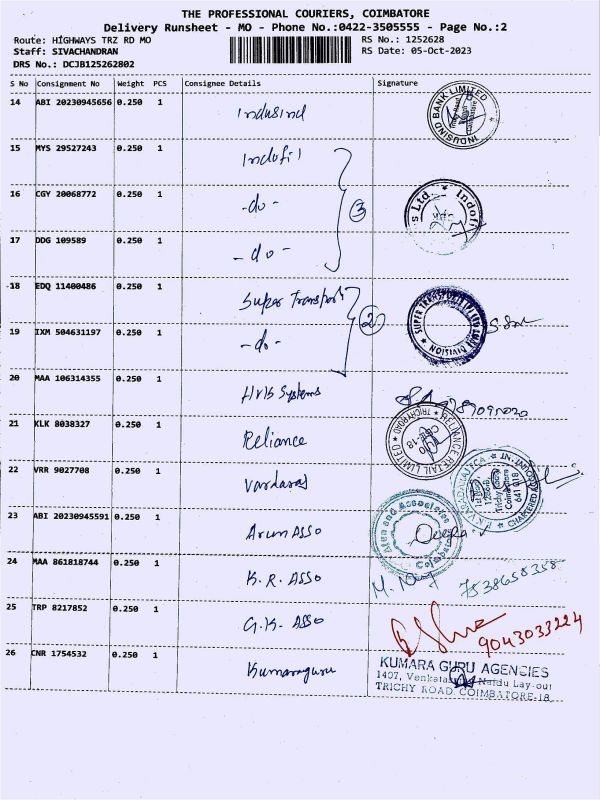 THE PROFESSIONAL COURIERS, COIMBATORE
Delivery Runsheet - MO - Phone No.:0422-3505555 - Page No.:2
Route: HIGHWAYS TRZ RD MO RS No.: 1252628
Staff: SIVACHANDRAN RS Date: 05-Oct-2023
DRS No.: DCJB125262802
S No Consignment No Weight PCS Consignee Details Signature
14 ABI 20230945656 0.250 1 Indusind INDUSIND BANK LIMITED
15 MYS 29527243 0.250 1 Indofil
16 CGY 20068772 0.250 1 -do- 3 s Ltd. * Indofi
17 DDG 109589 1 0.250 1 -do-
18 EDQ 11400486 0.250 1 Super Transports SUPER TRANSPORTS DIVISION
19 IXM 504631197 0.250 1 -do- 2
20 MAA 106314355 0.250 1 Systems
21 KLK 8038327 0.250 1 Reliance RELIANCE RETAIL LIMITED TRICHY ROAD CBE-18
22 VRR 9027708 0.250 1 Vardaraj Trichy Road Coimbatore 641 018 CHARTERED
23 ABI 20230945591 0.250 1 Arun ASSO and Associates Deepa
24 MAA 861818744 0.250 1 K.R. ASSO 7538658358
25 TRP 8217852 0.250 1 G.K. ASSO 9043033224
26 CNR 1754532 0.250 1 Kumaraguru KUMARA GURU AGENCIES
1407, Venkata Naidu Lay-out
TRICHY ROAD COIMBATORE-18